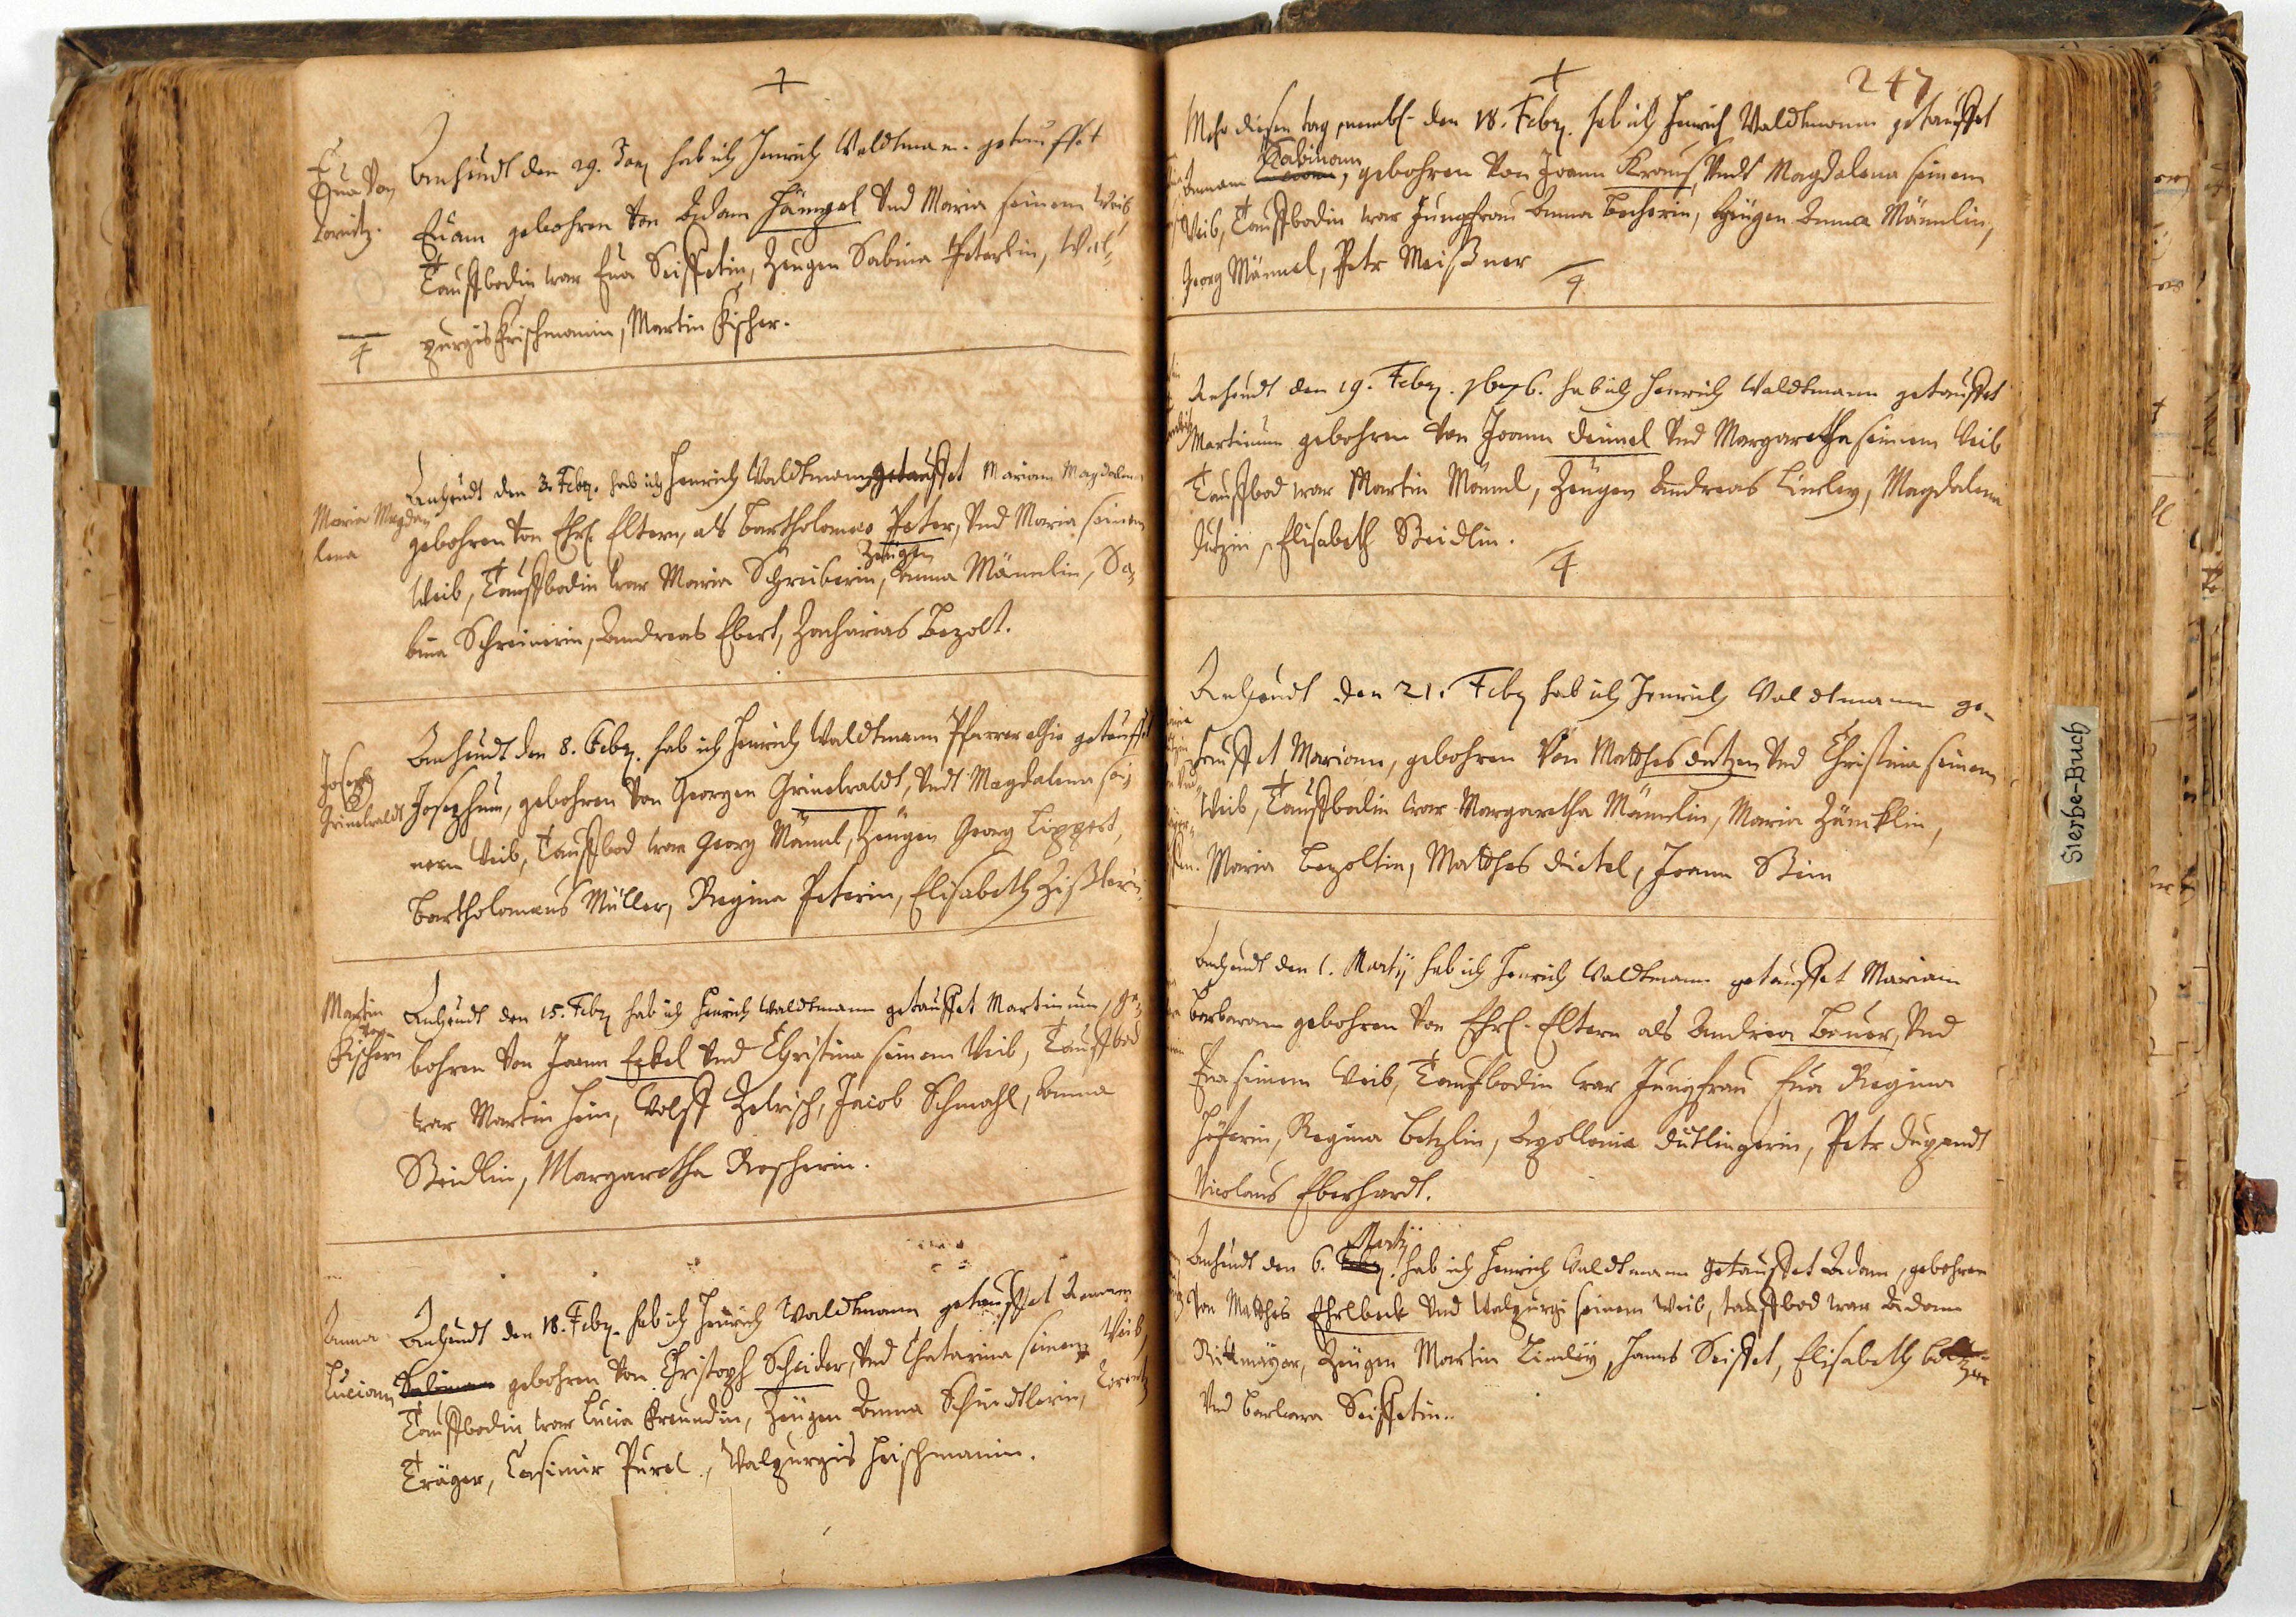 Eua von
Anheudt den 29. Jan hab ich Henrich Waldtman. getauffet
Euam gebohren von Adam Hämpel vnd Maria seinem Weib
Tauffbodin war Eua Seiffetin, Zeugen Sabina Peterlin, Wal-
purgis Frischmanin, Martin Fischer.
4
Anheudt den 3. Feby. hab ich Henrich Waldtman getauffet Mariam Magdalen
Maria Magda
lena
gebohren von Ehrl. Eltern, als Bartholomeo Peter, vnd Maria seinem
Zeugen
Weib, Tauffbodin war Maria Schreiberin, Anna Männlin, Sa-
bina Schreinerin, Andreas Ebert, Zacharias Bezolt.
Anheudt den 8. Feby. hab ich Henrich Waldtmann Pfarrer alhie getauffet
Joseph
Grinwaldt
Josephum, gebohren von Georgen Grinwaldt, vndt Magdalena sei-
nem Weib, Tauffbod war Georg Männl, Zeugen Georg Lippert,
Bartholomeus Müller, Regina Peterin, Elisabeth Zißlerin
Martin
von
Fischern
Anheudt den 15. Feby hab ich Henrich Waldtmann getauffet Martinum, ge-
bohren von Joann Eckel vnd Christina seinem Weib, Tauffbod
war Martin Hein, Wolff Zelrisch, Jacob Schmahl, Anna
Beidlin, Margaretha Roscherin.
Anna
Luciam
Anheudt den 18. Feby. hab ich Henrich Waldtmann getauffet Annam
Sabinam gebohren von Christoph Scheider, vnd Chatarina seinem Weib,
Tauffbodin war Lucia Freundin, Zeugen Anna Schindtlerin, Lorentz
Träger, Casimir Purel, Walpurgis Heischmanin.
247
Mehr diesen tag, nembl. den 18. Feby. hab ich Henrich Waldtmann getauffet
Sabinam
Annam, gebohren von Joann Kraus, vndt Magdalena seinem
Weib, Tauffbodin war Jungfrau Anna Becherin, Zeugen Anna Männlin,
Georg Männel, Petr Meißner
4
Anheudt den 19. Feby. 1676. hab ich Henrich Waldtmann getauffet
Martinum gebohren von Joann Deimel vnd Margaretha seinem Weib
Tauffbod war Martin Männl, Zeugen Andreas Linley, Magdalena
Dutzin, Elisabeth Beidlin.
4
Anheudt den 21. Feby hab ich Henrich Waldtmann ge-
tauffet Mariam, gebohren von Matthes Dutzen vnd Christina seinem
Weib, Tauffbodin war Margaretha Männlin, Maria Zäncklin,
Maria Bezoltin, Matthes Dietel, Joann Bein
Anheudt den 1. Martij hab ich Henrich Waldtmann getauffet Mariam
Barbaram gebohren von Ehrl. Eltern als Andrea Bauer, vnd
Eua seinem Weib, Tauffbodin war Jungfrau Eua Regina
Höferin, Regina Betzlin, Apollonia Dutlingerin, Petr Dupendt
Nicolaus Eberhardt.
Martij
Anheudt den 6. Feby. hab ich Henrich Waldtmann getauffet Adam, gebohren
von Matthes Ehrlbeck vnd Walpurgi seinem Weib, tauffbod war Adam
Rittmäyer, Zeugen Martin Linley, Hanns Seiffet, Elisabeth
vnd Barbara Seiffetin.
Sterbe-Buch